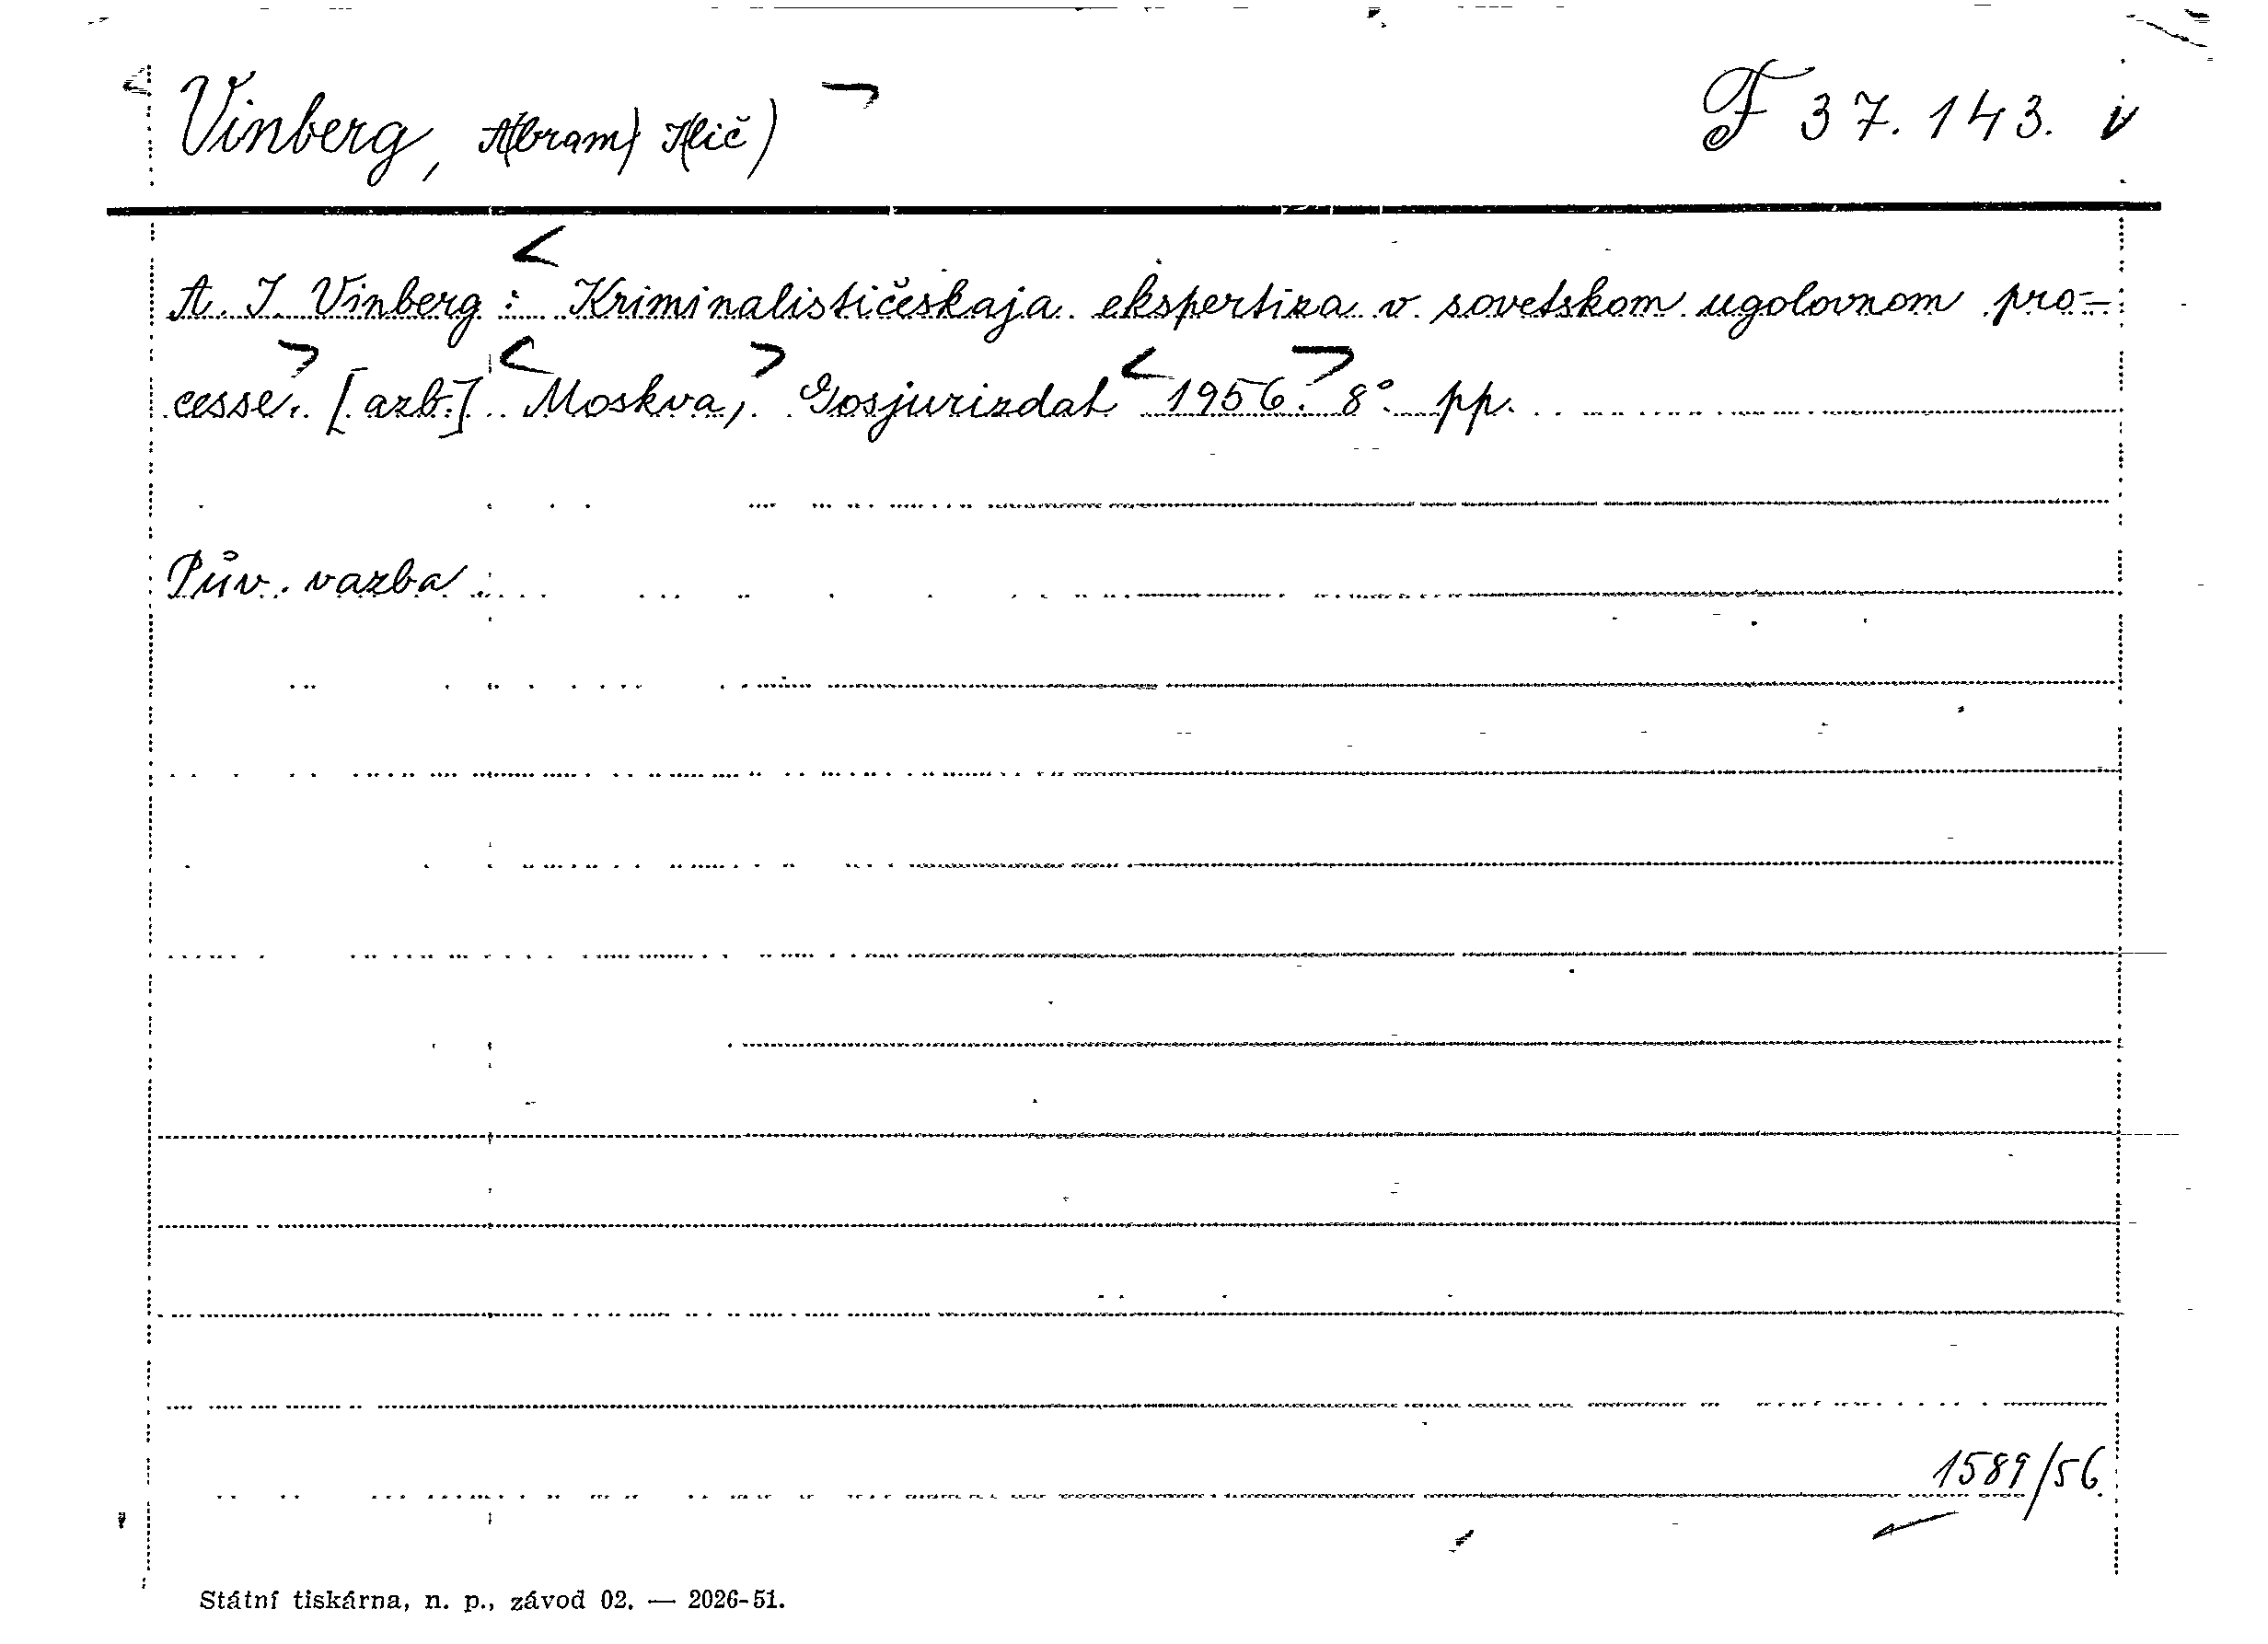 Vinberg, A(bram) I(lič) F 37.143.
A. I. Vinberg: Kriminalističeskaja ekspertiza v sovetskom ugolovnom pro-
cesse. [azb.] Moskva, Gosjurizdat 1956. 8° pp.
Pův. vazba.
1589/56.
Státní tiskárna, n. p., závod 02. — 2026-51.